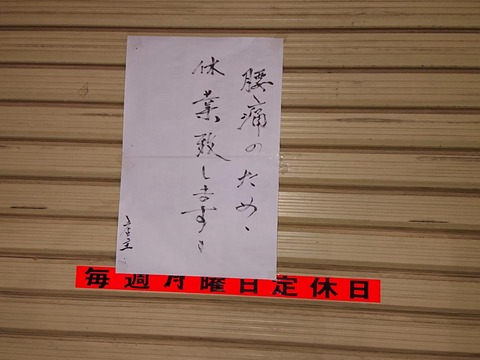 腰痛のため、
休業致します。
店主
毎週月曜日定休日